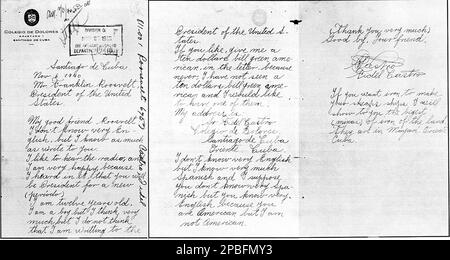 COLEGIO DE DOLORES
SANTIAGO DE CUBA
Santiago de Cuba
Nov 6 1940
Mr Franklin Roosevelt,
President of the United
States
My good friend Roosevelt
I don't know very En-
glish, but I know as much
as write to you.
I like to hear the radio, and
I am very happy, because
I heard in it, that you will
be President for a new
(periodo)
I am twelve years old.
I am a boy but I think very
much but I do not think
that I am writting to the
President of the United
States.
If you like, give me a
ten dollars bill green ame-
rican, in the letter, because
never, I have not seen a
ten dollars bill green ame-
rican and I would like
to have one of them.
My address is:
Sr Fidel Castro
Colegio de Dolores
Santiago de Cuba
Oriente Cuba
I don't know very English
but I know very much
Spanish and I suppose
you don't know very Spa-
nish but you know very
English because you
are American but I am
not American.
(Thank you very much)
Good by. Your friend,
Fidel Castro
If you want iron to make
your ships I will
show to you the bigest
(minas) of iron of the land
They are in Mayari Oriente
Cuba.
alamy
Image ID: 2PBFMY3
www.alamy.com